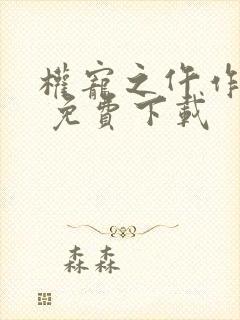 權寵之仵作
免費下載
森森